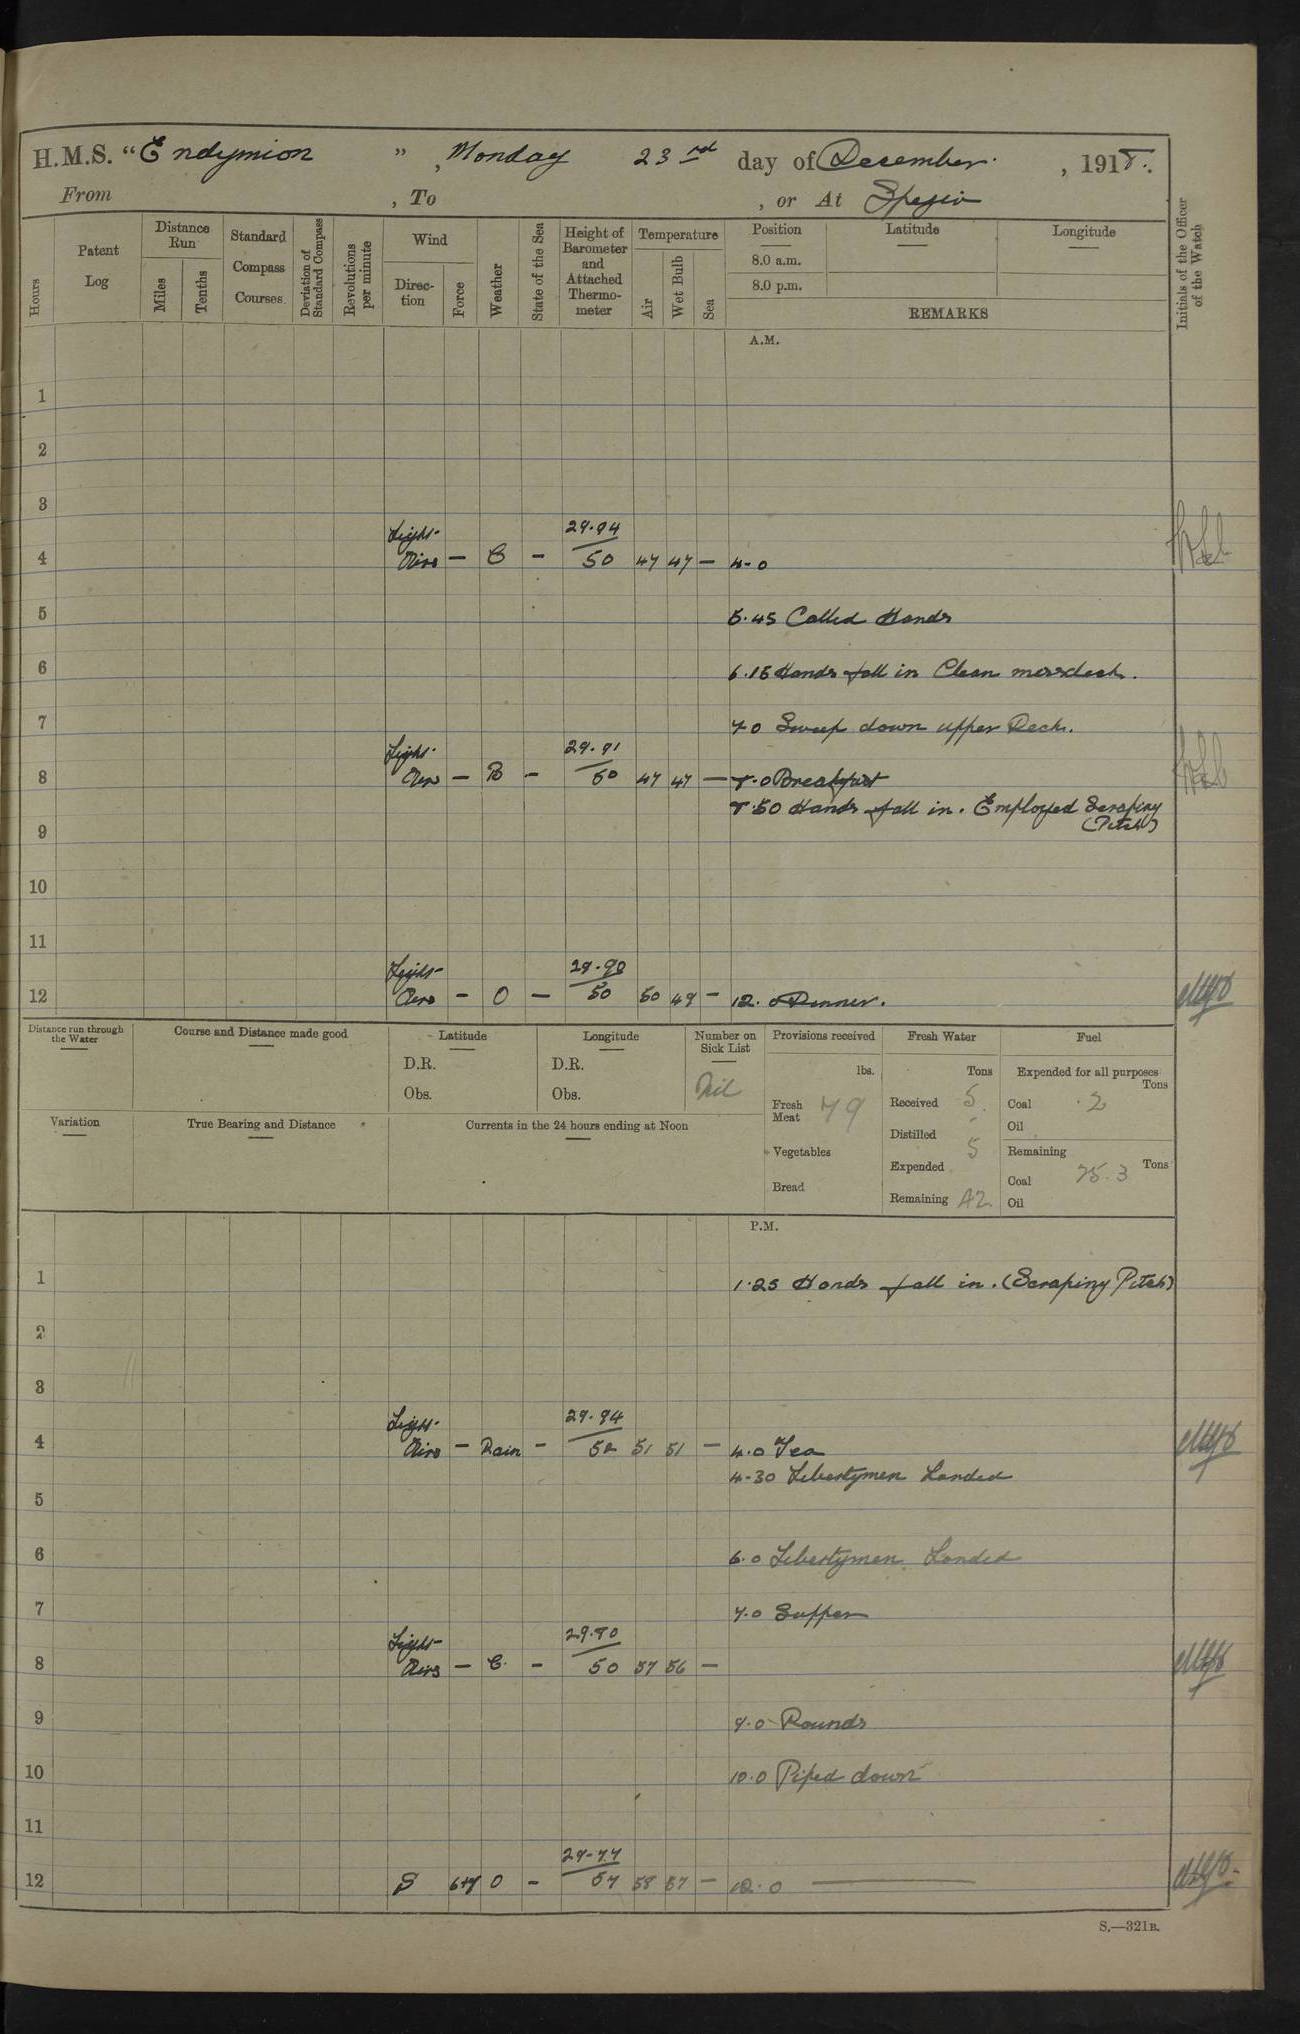 H.M.S. "Endymion", Monday 23rd day of December, 1918.
From , To , or At Spezia
Hours
Patent Log
Distance Run
Miles
Tenths
Standard Compass Courses
Deviation of Standard Compass
Revolutions per minute
Wind
Direction
Force
Weather
State of the Sea
Height of Barometer and Attached Thermometer
Temperature
Air
Wet Bulb
Sea
Position
8.0 a.m.
8.0 p.m.
Latitude
Longitude
REMARKS
Initials of the Officer of the Watch
A.M.
1
2
3
4 Light Airs — C — 29.94 50 47 47 — 4-0
5 5.45 Called Hands
6 6.15 Hands fall in Clean messdeck.
7 7.0 Sweep down upper Deck.
8 Light Airs — B — 29.91 50 47 47 — 8.0 Breakfast
8.50 Hands fall in. Employed Scraping (Pitch)
9
10
11
12 Light Airs — O — 29.90 50 50 49 — 12.0 Dinner.
Distance run through the Water
Course and Distance made good
Latitude
D.R.
Obs.
Longitude
D.R.
Obs.
Number on Sick List
Nil
Provisions received
lbs.
Fresh Meat 79
Vegetables
Bread
Fresh Water
Tons
Received 5
Distilled -
Expended 5
Remaining 42
Fuel
Expended for all purposes
Tons
Coal .2
Oil
Remaining
Tons
Coal 75.3
Oil
Variation
True Bearing and Distance
Currents in the 24 hours ending at Noon
P.M.
1 1.25 Hands fall in. (Scraping Pitch)
2
3
4 Light Airs — Rain — 29.94 52 51 51 — 4.0 Tea
4-30 Libertymen Landed
5
6 6.0 Libertymen Landed
7 7.0 Supper
8 Light Airs — C. — 29.80 50 57 56 —
9 9.0 Rounds
10 10.0 Piped down
11
12 S 6+7 O — 29-77 57 58 57 — 12.0
S.—321B.